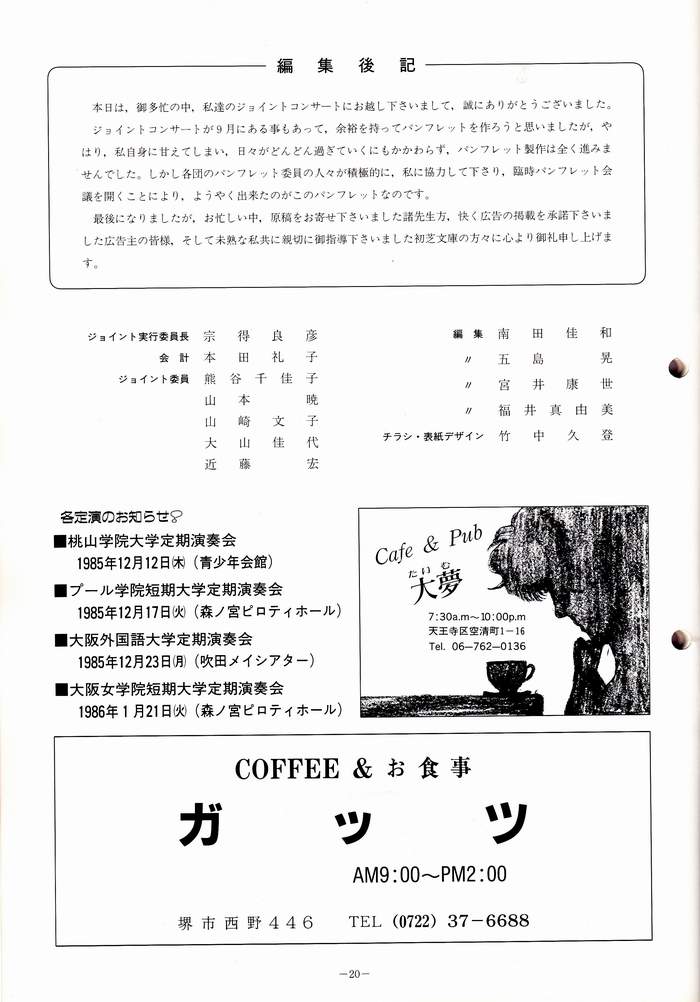 編集後記
本日は，御多忙の中，私達のジョイントコンサートにお越し下さいまして，誠にありがとうございました。
ジョイントコンサートが9月にある事もあって，余裕を持ってパンフレットを作ろうと思いましたが，や
はり，私自身に甘えてしまい，日々がどんどん過ぎていくにもかかわらず，パンフレット製作は全く進みま
せんでした。しかし各団のパンフレット委員の人々が積極的に，私に協力して下さり，臨時パンフレット会
議を開くことにより，ようやく出来たのがこのパンフレットなのです。
最後になりましたが，お忙しい中，原稿をお寄せ下さいました諸先生方，快く広告の掲載を承諾下さいま
した広告主の皆様，そして未熟な私共に親切に御指導下さいました初芝文庫の方々に心より御礼申し上げま
す。
ジョイント実行委員長 宗得良彦
会計 本田礼子
ジョイント委員 熊谷千佳子
山本暁
山崎文子
大山佳代
近藤宏
編集 南田佳和
〃 五島晃
〃 宮井康世
〃 福井真由美
チラシ・表紙デザイン 竹中久登
各定演のお知らせ
■桃山学院大学定期演奏会
1985年12月12日㈭（青少年会館）
■プール学院短期大学定期演奏会
1985年12月17日㈫（森ノ宮ピロティホール）
■大阪外国語大学定期演奏会
1985年12月23日㈪（吹田メイシアター）
■大阪女学院短期大学定期演奏会
1986年1月21日㈫（森ノ宮ピロティホール）
Cafe & Pub
たいむ
大夢
7:30a.m〜10:00p.m
天王寺区空清町1－16
Tel. 06－762－0136
COFFEE & お食事
ガッツ
AM9:00〜PM2:00
堺市西野446 TEL (0722) 37－6688
－20－